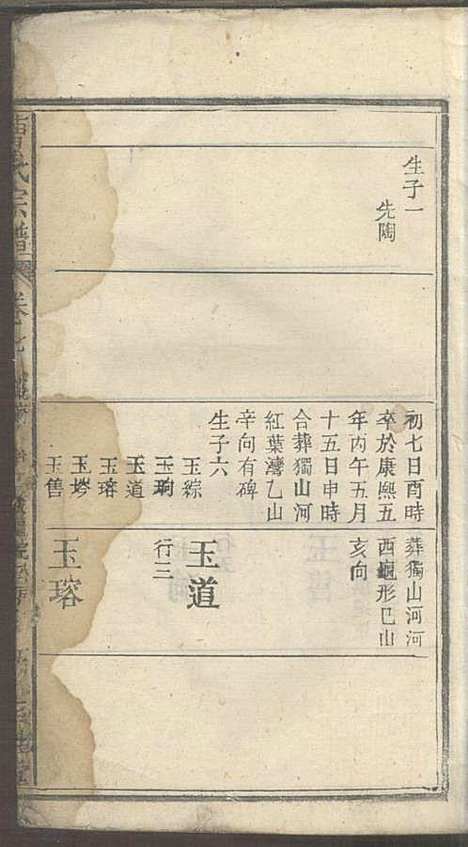 生子一
先陶
初七日酉時
卒於康熙五
年丙午五月
十五日申時
合葬獨山河
紅葉灣乙山
辛向有碑
生子六
玉綜
玉珣
玉道
玉瑢
玉㙊
玉售
葬獨山河河
西龜形巳山
亥向
玉道
行三
玉瑢
曹氏宗譜
卷七